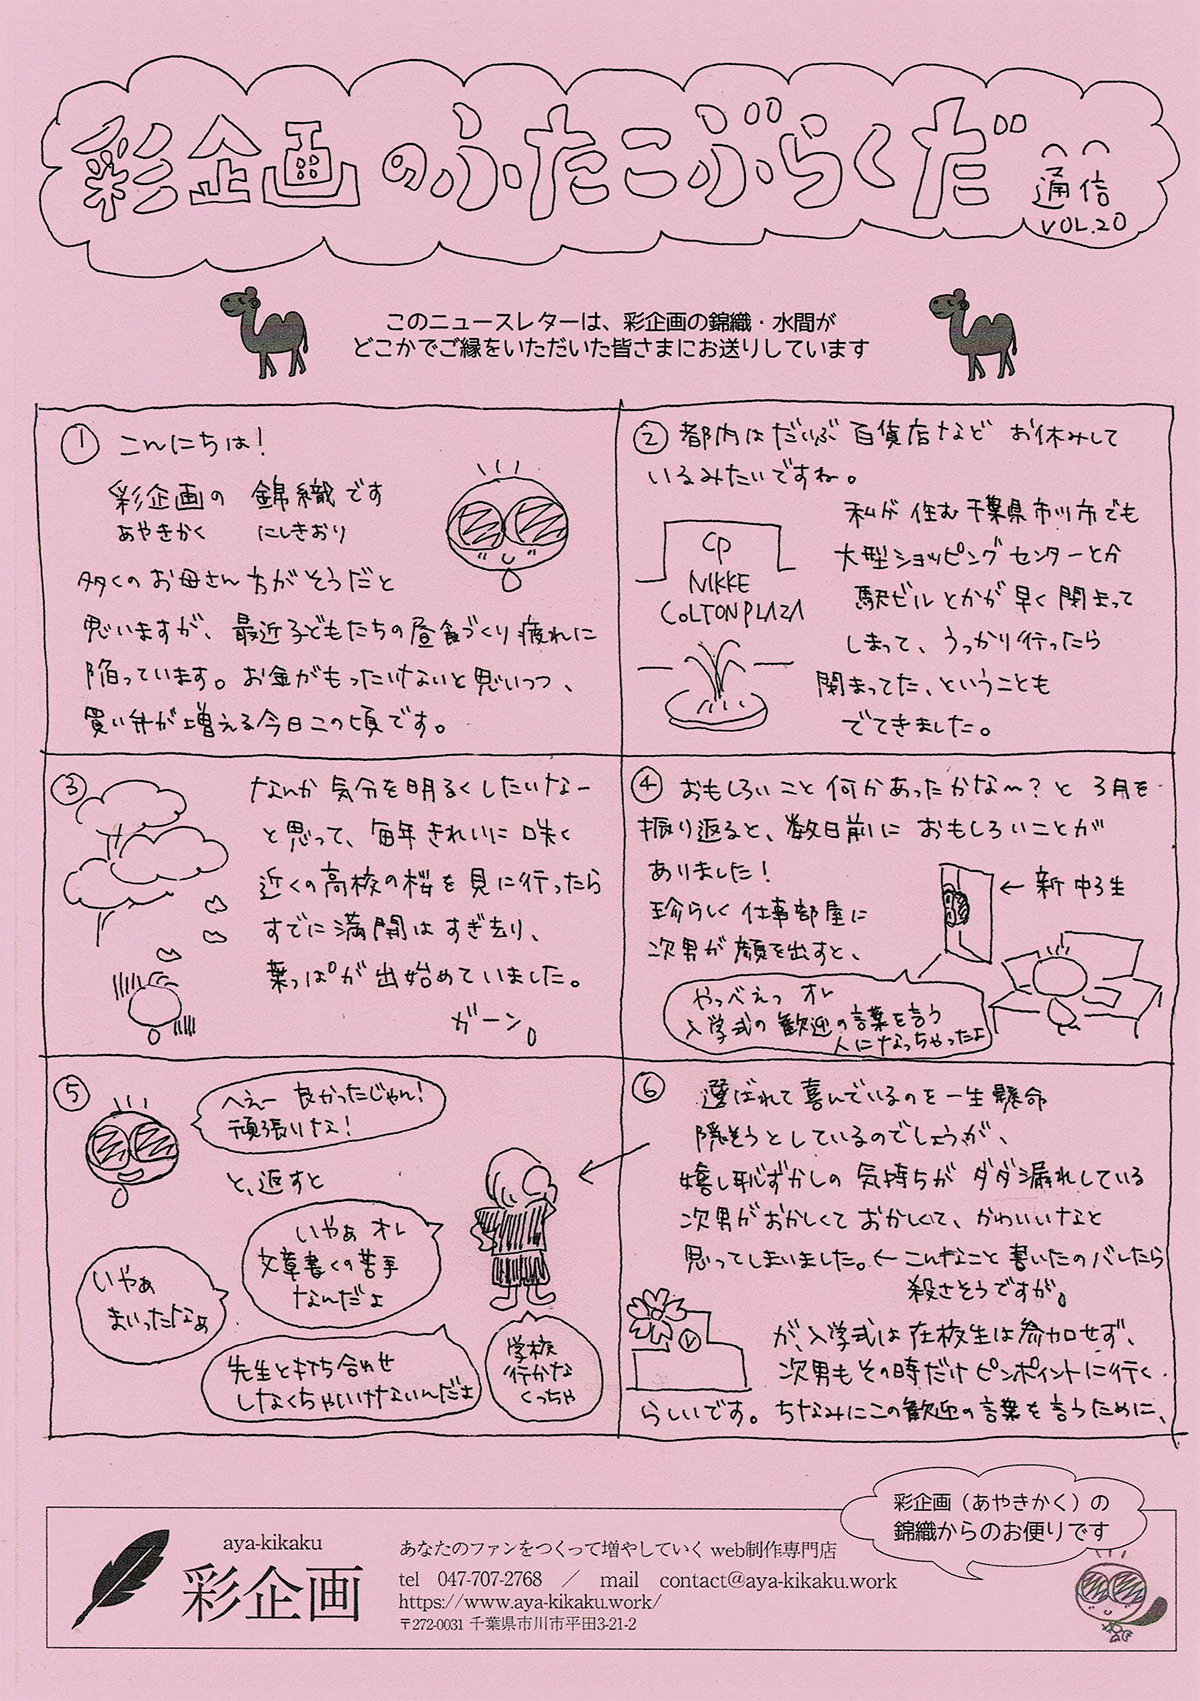 彩企画のふたこぶらくだ
通信
VOL.20
このニュースレターは、彩企画の錦織・水間が
どこかでご縁をいただいた皆さまにお送りしています
① こんにちは!
彩企画の 錦織です
あやきかく にしきおり
多くのお母さん方がそうだと
思いますが、最近子どもたちの昼食づくり疲れに
陥っています。お金がもったいないと思いつつ、
買い弁が増える今日この頃です。
② 都内はだいぶ 百貨店など お休みして
いるみたいですね。
私が 住む千葉県市川市でも
大型ショッピングセンターとか
駅ビルとかが早く閉まって
しまって、うっかり行ったら
閉まってた、ということも
でてきました。
CP
NIKKE
COLTONPLAZA
③ なんか 気分を明るくしたいなー
と思って、毎年きれいに咲く
近くの高校の桜を見に行ったら
すでに満開はすぎ去り、
葉っぱが出始めていました。
ガーン。
④ おもしろいこと何かあったかな〜?と 3月を
振り返ると、数日前に おもしろいことが
ありました!
珍らしく 仕事部屋に
次男が顔を出すと、
← 新中3生
やっべえっ オレ
入学式の歓迎の言葉を言う
人になっちゃったよ
⑤ へえー 良かったじゃん!
頑張りな!
と、返すと
いやぁ オレ
文章書くの苦手
なんだよ
いやぁ
まいったなぁ
先生と打ち合わせ
しなくちゃいけないんだよ
学校
行かな
くっちゃ
⑥ 選ばれて喜んでいるのを一生懸命
隠そうとしているのでしょうが、
嬉し恥ずかしの 気持ちが ダダ漏れしている
次男がおかしくておかしくて、かわいいなと
思ってしまいました。← こんなこと書いたのバレたら
殺さそうですが。
が、入学式は在校生は参加せず、
次男もその時だけピンポイントに行く
らしいです。ちなみにこの歓迎の言葉を言うために、
彩企画(あやきかく)の
錦織からのお便りです
aya-kikaku
彩企画
あなたのファンをつくって増やしていく web制作専門店
tel 047-707-2768 / mail contact@aya-kikaku.work
https://www.aya-kikaku.work/
〒272-0031 千葉県市川市平田3-21-2